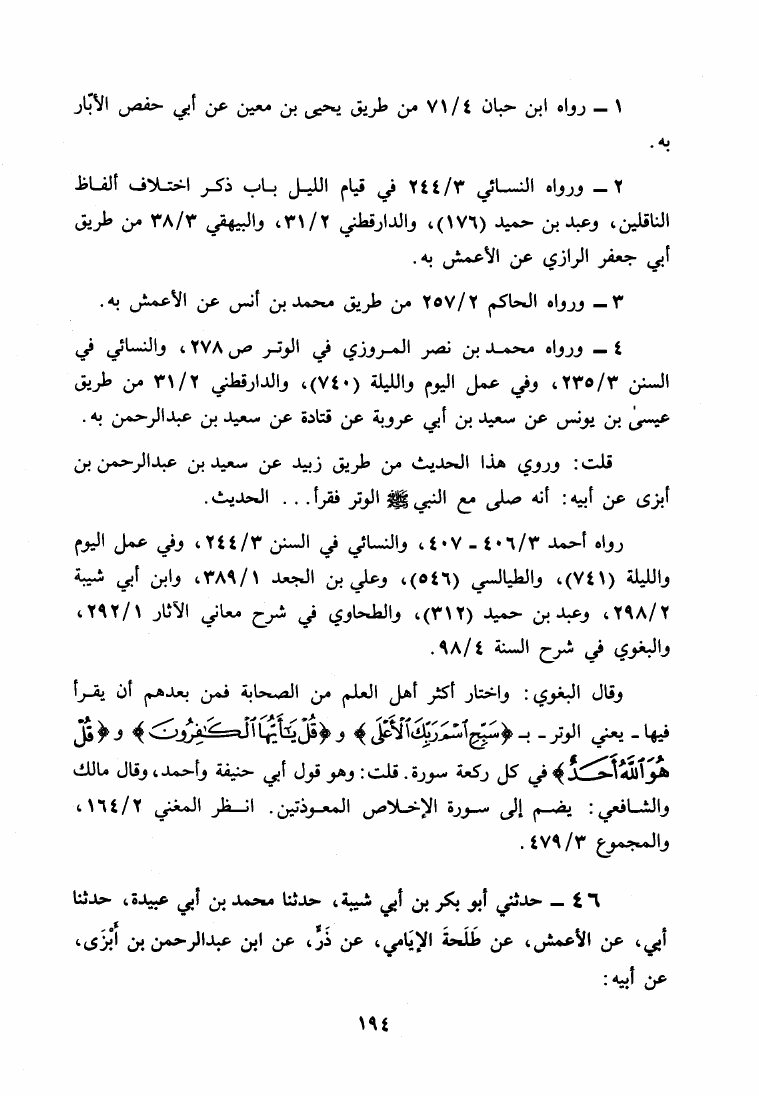 ١ ــ رواه ابن حبان ٧١/٤ من طريق يحيى بن معين عن أبي حفص الأبّار
به.
٢ ــ ورواه النسائي ٢٤٤/٣ في قيام الليل باب ذكر اختلاف ألفاظ
الناقلين، وعبد بن حميد (١٧٦)، والدارقطني ٣١/٢، والبيهقي ٣٨/٣ من طريق
أبي جعفر الرازي عن الأعمش به.
٣ ــ ورواه الحاكم ٢٥٧/٢ من طريق محمد بن أنس عن الأعمش به.
٤ ــ ورواه محمد بن نصر المروزي في الوتر ص ٢٧٨، والنسائي في
السنن ٢٣٥/٣، وفي عمل اليوم والليلة (٧٤٠)، والدارقطني ٣١/٢ من طريق
عيسىٰ بن يونس عن سعيد بن أبي عروبة عن قتادة عن سعيد بن عبدالرحمن به.
قلت: وروي هذا الحديث من طريق زبيد عن سعيد بن عبدالرحمن بن
أبزى عن أبيه: أنه صلى مع النبي ﷺ الوتر فقرأ... الحديث.
رواه أحمد ٤٠٦/٣ ــ ٤٠٧، والنسائي في السنن ٢٤٤/٣، وفي عمل اليوم
والليلة (٧٤١)، والطيالسي (٥٤٦)، وعلي بن الجعد ٣٨٩/١، وابن أبي شيبة
٢٩٨/٢، وعبد بن حميد (٣١٢)، والطحاوي في شرح معاني الآثار ٢٩٢/١،
والبغوي في شرح السنة ٩٨/٤.
وقال البغوي: واختار أكثر أهل العلم من الصحابة فمن بعدهم أن يقرأ
فيها ـ يعني الوتر ـ بـ ﴿سَبِّحِ ٱسْمَ رَبِّكَ ٱلْأَعْلَى﴾ و ﴿قُلْ يَٰٓأَيُّهَا ٱلْكَٰفِرُونَ﴾ و ﴿قُلْ
هُوَ ٱللَّهُ أَحَدٌ﴾ في كل ركعة سورة. قلت: وهو قول أبي حنيفة وأحمد، وقال مالك
والشافعي: يضم إلى سورة الإخلاص المعوذتين. انظر المغني ١٦٤/٢،
والمجموع ٤٧٩/٣.
٤٦ ــ حدثني أبو بكر بن أبي شيبة، حدثنا محمد بن أبي عبيدة، حدثنا
أبي، عن الأعمش، عن طَلَحةَ الإيَامي، عن ذَرٍّ، عن ابن عبدالرحمن بن أَبْزَى،
عن أبيه:
١٩٤